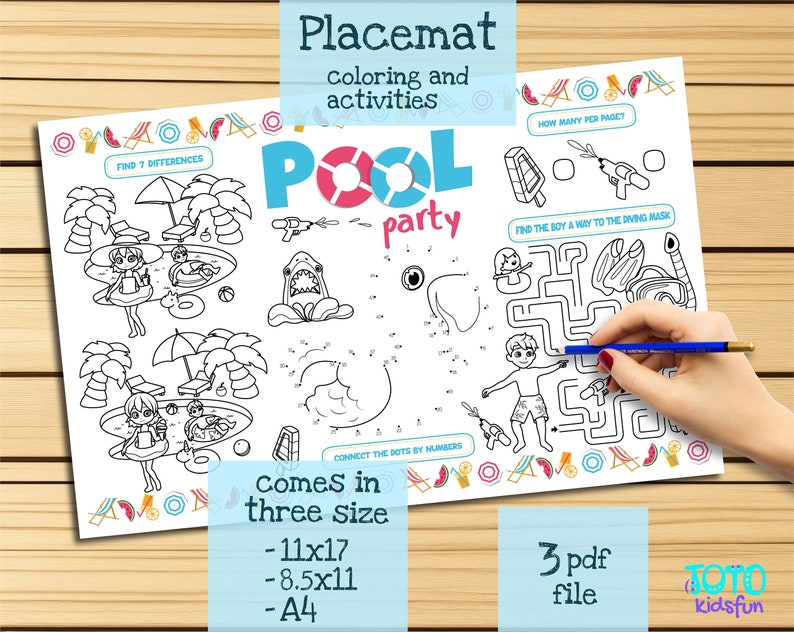 Placemat
coloring and
activities
FIND 7 DIFFERENCES
POOL
party
HOW MANY PER PAGE?
FIND THE BOY A WAY TO THE DIVING MASK
CONNECT THE DOTS BY NUMBERS
comes in
three size
-11x17
-8.5x11
-A4
3 pdf
file
TOTO
kidsfun